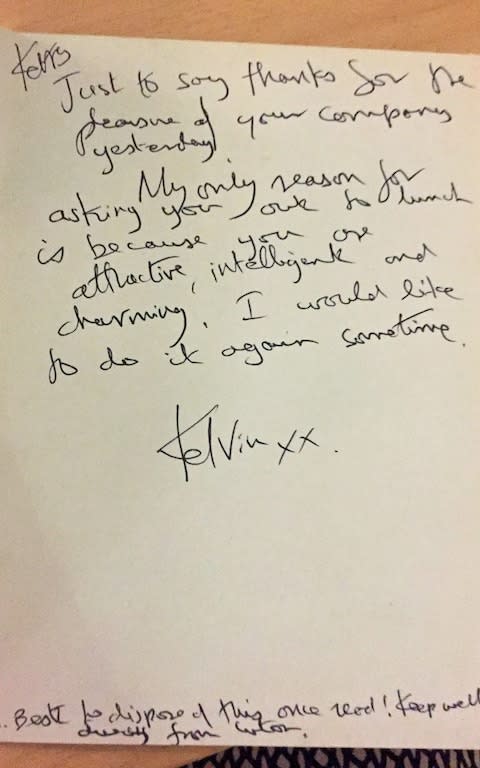 Kerry
Just to say thanks for the
pleasure of your company
yesterday!
My only reason for
asking you out to lunch
is because you are
attractive, intelligent and
charming. I would like
to do it again sometime.
Kelvin xx.
.. Best to dispose of this once read! Keep well
away from